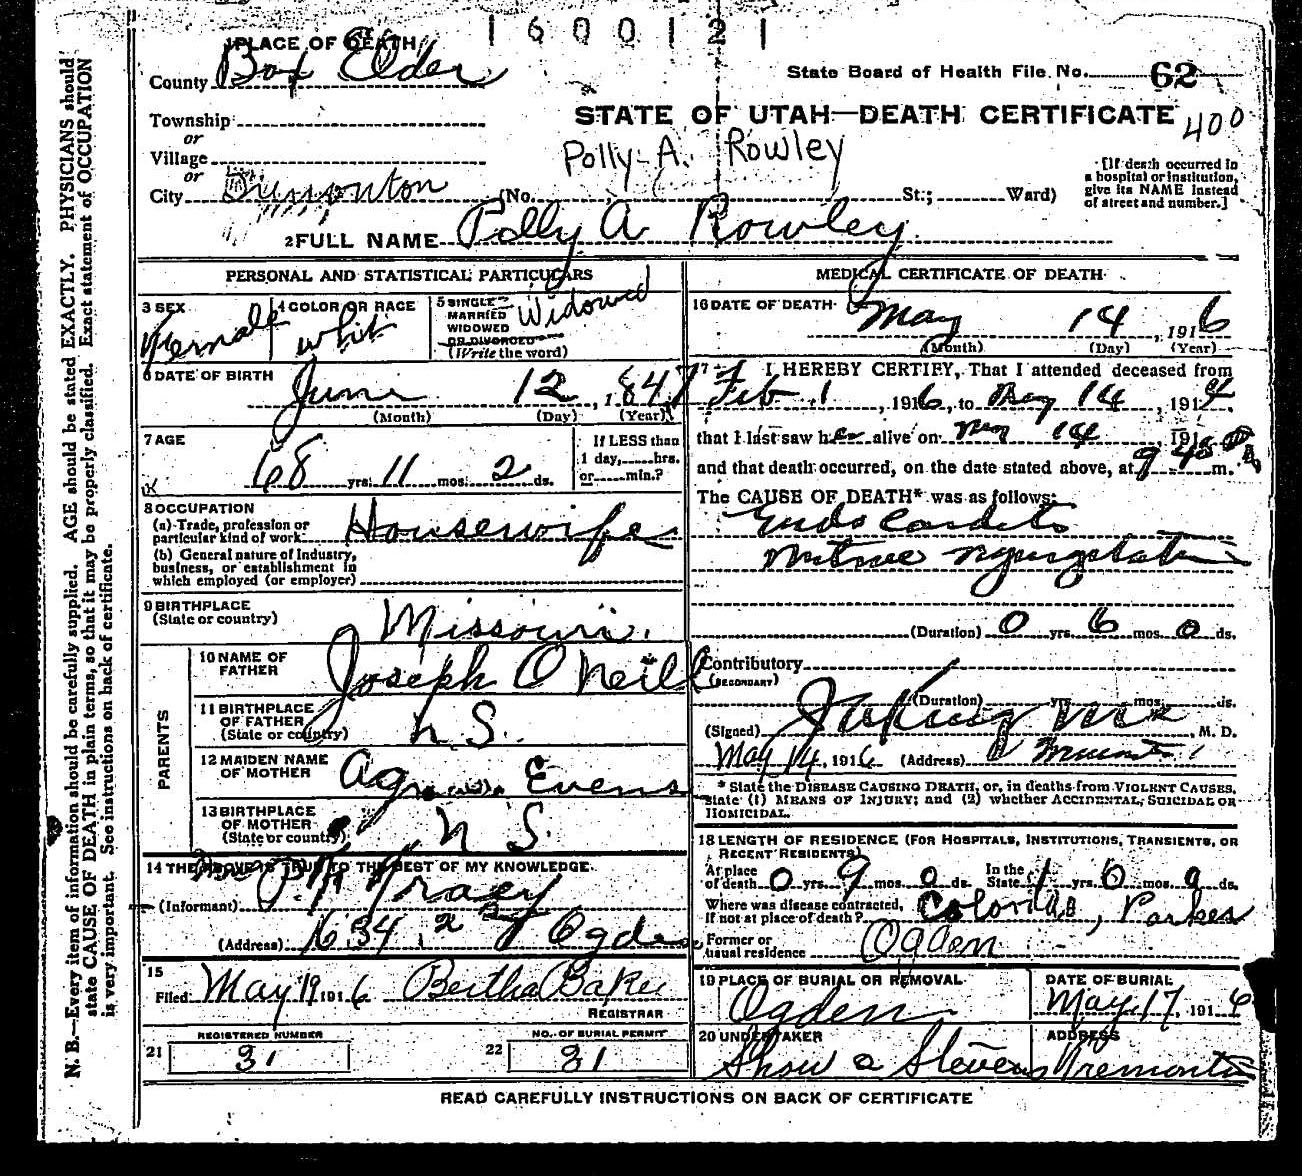 1600121
1 PLACE OF DEATH
County Box Elder
State Board of Health File No. 62
STATE OF UTAH—DEATH CERTIFICATE
400
Township
or
Village
or
City
Polly A. Rowley
(No. St.; Ward)
[If death occurred in
a hospital or institution,
give its NAME instead
of street and number.]
2 FULL NAME Polly A Rowley
PERSONAL AND STATISTICAL PARTICULARS
3 SEX Female
4 COLOR OR RACE whit
5 SINGLE
MARRIED
WIDOWED
OR DIVORCED
(Write the word)
Widowed
6 DATE OF BIRTH
June 12, 1847
(Month) (Day) (Year)
7 AGE
68 yrs. 11 mos. 2 ds.
If LESS than
1 day,.....hrs.
or.....min.?
8 OCCUPATION
(a) Trade, profession or
particular kind of work Housewife
(b) General nature of Industry,
business, or establishment in
which employed (or employer)
9 BIRTHPLACE
(State or country) Missouri.
PARENTS
10 NAME OF
FATHER Joseph O Neill
11 BIRTHPLACE
OF FATHER
(State or country) N S.
12 MAIDEN NAME
OF MOTHER Evens
13 BIRTHPLACE
OF MOTHER
(State or country) N S.
14 THE ABOVE IS TRUE TO THE BEST OF MY KNOWLEDGE
(Informant)
(Address) Ogden
15
Filed May 19 1916 Bertha Baker
REGISTRAR
REGISTERED NUMBER
21 31
NO. OF BURIAL PERMIT
22 31
MEDICAL CERTIFICATE OF DEATH
16 DATE OF DEATH
May 14, 1916
(Month) (Day) (Year)
17 I HEREBY CERTIFY, That I attended deceased from
Feb 1, 1916, to May 14, 191
that I last saw her alive on May 14, 191
and that death occurred, on the date stated above, at 9 45 P m.
The CAUSE OF DEATH* was as follows:
(Duration) 0 yrs. 6 mos. 0 ds.
Contributory
(SECONDARY)
(Duration) yrs. mos. ds.
(Signed) M. D.
May 14, 1916 (Address)
* State the DISEASE CAUSING DEATH, or, in deaths from VIOLENT CAUSES,
state (1) MEANS OF INJURY; and (2) whether ACCIDENTAL, SUICIDAL OR
HOMICIDAL.
18 LENGTH OF RESIDENCE (FOR HOSPITALS, INSTITUTIONS, TRANSIENTS, OR
RECENT RESIDENTS)
At place
of death 0 yrs. 9 mos. 0 ds. In the
State yrs. mos. ds.
Where was disease contracted,
if not at place of death?
Former or
usual residence Ogden
19 PLACE OF BURIAL OR REMOVAL
Ogden
DATE OF BURIAL
May 17, 1916
20 UNDERTAKER
ADDRESS
Tremonton
READ CAREFULLY INSTRUCTIONS ON BACK OF CERTIFICATE
N. B.—Every item of information should be carefully supplied. AGE should be stated EXACTLY. PHYSICIANS should
state CAUSE OF DEATH in plain terms, so that it may be properly classified. Exact statement of OCCUPATION
is very important. See instructions on back of certificate.